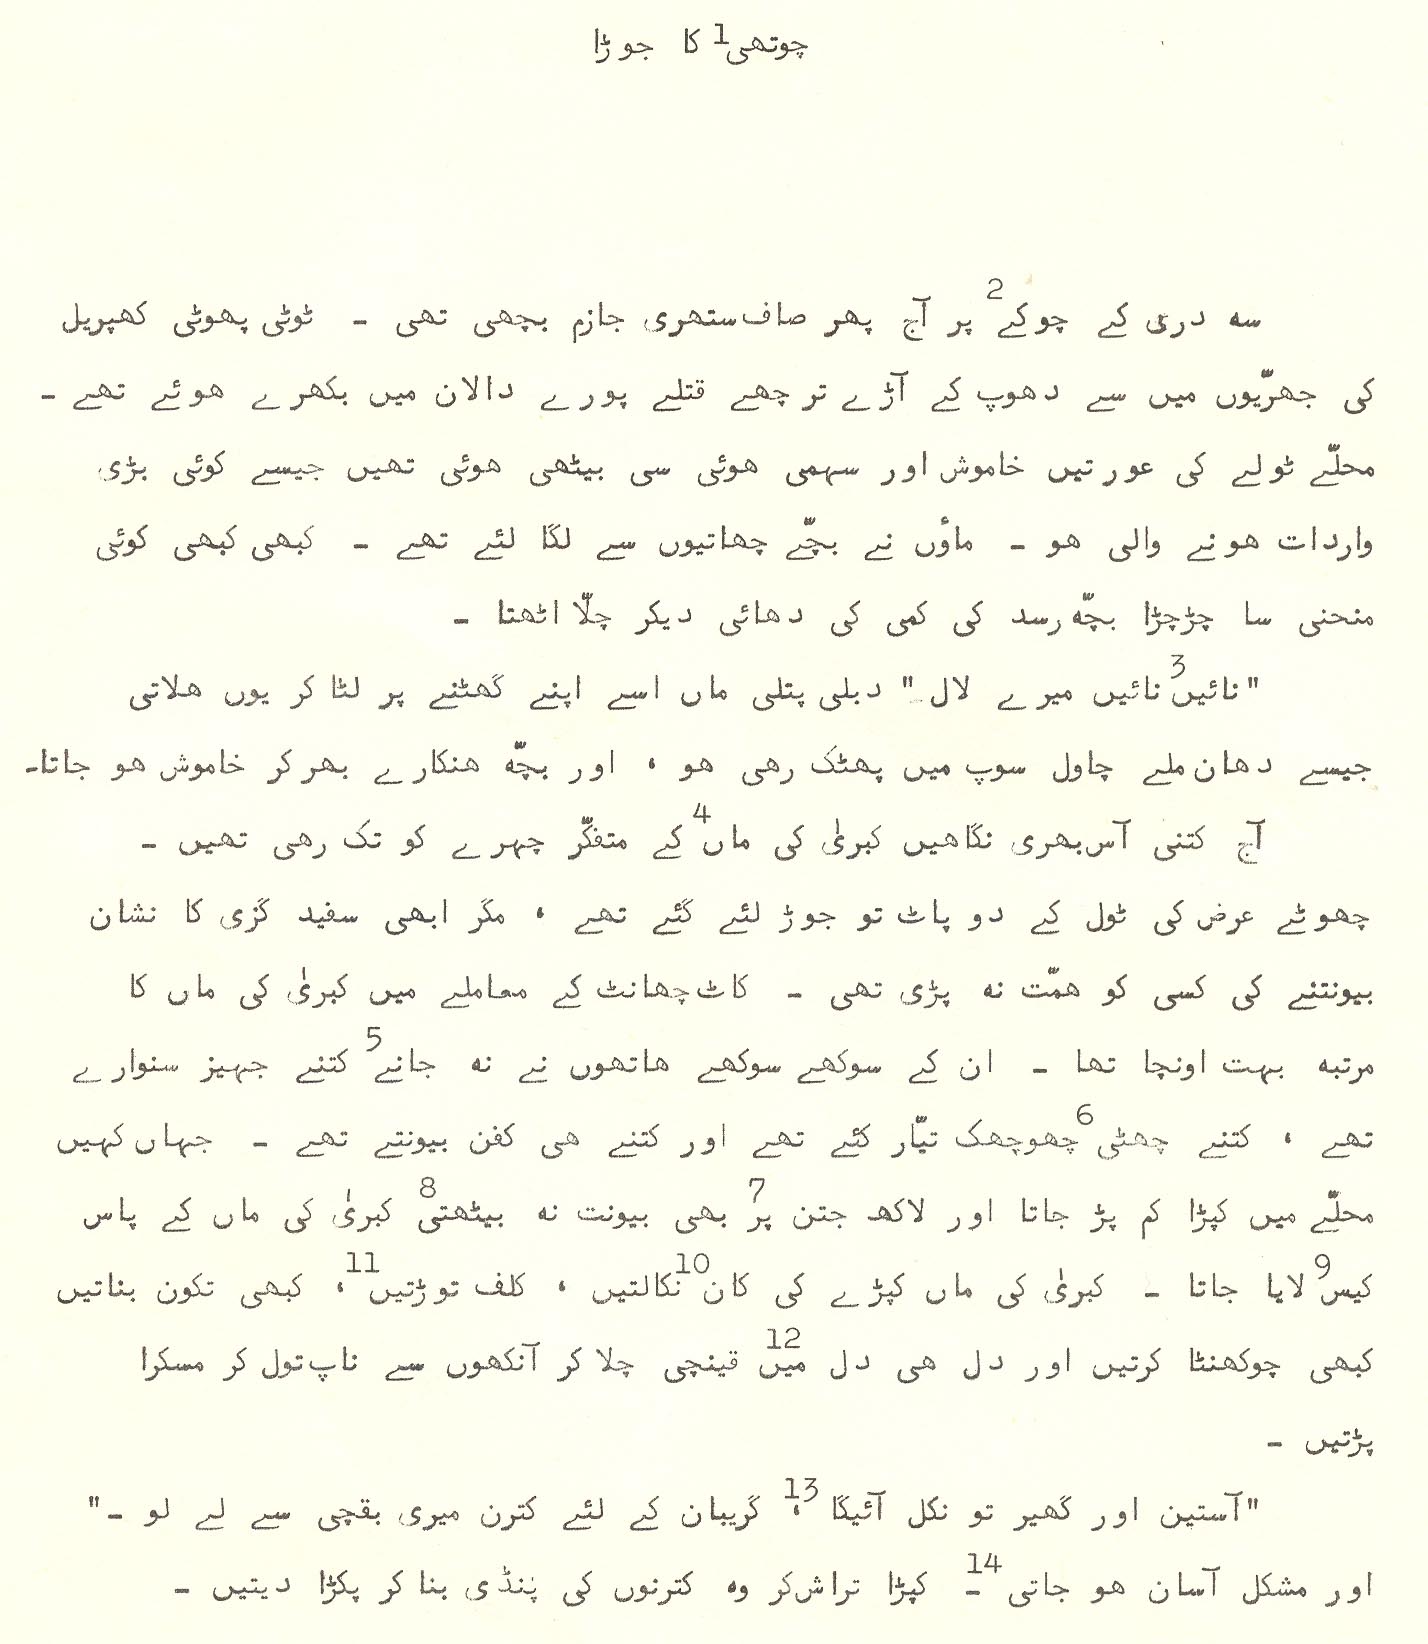 چوتھی1 کا جوڑا
سہ دری کے چوکے2 پر آج پھر صاف ستھری جازم بچھی تھی ۔ ٹوٹی پھوٹی کھپریل
کی جھرّیوں میں سے دھوپ کے آڑے ترچھے قتلے پورے دالان میں بکھرے ھوئے تھے ۔
محلّے ٹولے کی عورتیں خاموش اور سہمی ھوئی سی بیٹھی ھوئی تھیں جیسے کوئی بڑی
واردات ھونے والی ھو ۔ ماؤں نے بچّے چھاتیوں سے لگا لئے تھے ۔ کبھی کبھی کوئی
منحنی سا چڑچڑا بچّہ رسد کی کمی کی دھائی دیکر چلّا اٹھتا ۔
"نائیں3 نائیں میرے لال۔" دبلی پتلی ماں اسے اپنے گھٹنے پر لٹا کر یوں ھلاتی
جیسے دھان ملے چاول سوپ میں پھٹک رھی ھو ، اور بچّہ ھنکارے بھر کر خاموش ھو جاتا۔
آج کتنی آس بھری نگاھیں کبریٰ کی ماں4 کے متفکّر چہرے کو تک رھی تھیں ۔
چھوٹے عرض کی ٹول کے دو پاٹ تو جوڑ لئے گئے تھے ، مگر ابھی سفید گزی کا نشان
بیونتنے کی کسی کو ھمّت نہ پڑی تھی ۔ کاٹ چھانٹ کے معاملے میں کبریٰ کی ماں کا
مرتبہ بہت اونچا تھا ۔ ان کے سوکھے سوکھے ھاتھوں نے نہ جانے5 کتنے جہیز سنوارے
تھے ، کتنے چھٹی6 چھوچھک تیّار کئے تھے اور کتنے ھی کفن بیونتے تھے ۔ جہاں کہیں
محلّے میں کپڑا کم پڑ جاتا اور لاکھ جتن پر7 بھی بیونت نہ بیٹھتی8 کبریٰ کی ماں کے پاس
کیس9 لایا جاتا ۔ کبریٰ کی ماں کپڑے کی کان10 نکالتیں ، کلف توڑتیں11، کبھی تکون بناتیں
کبھی چوکھنٹا کرتیں اور دل ھی دل میں12 قینچی چلا کر آنکھوں سے ناپ تول کر مسکرا
پڑتیں ۔
"آستین اور گھیر تو نکل آئیگا13، گریبان کے لئے کترن میری بقچی سے لے لو ۔"
اور مشکل آسان ھو جاتی14۔ کپڑا تراش کر وہ کترنوں کی پنڈی بنا کر پکڑا دیتیں ۔